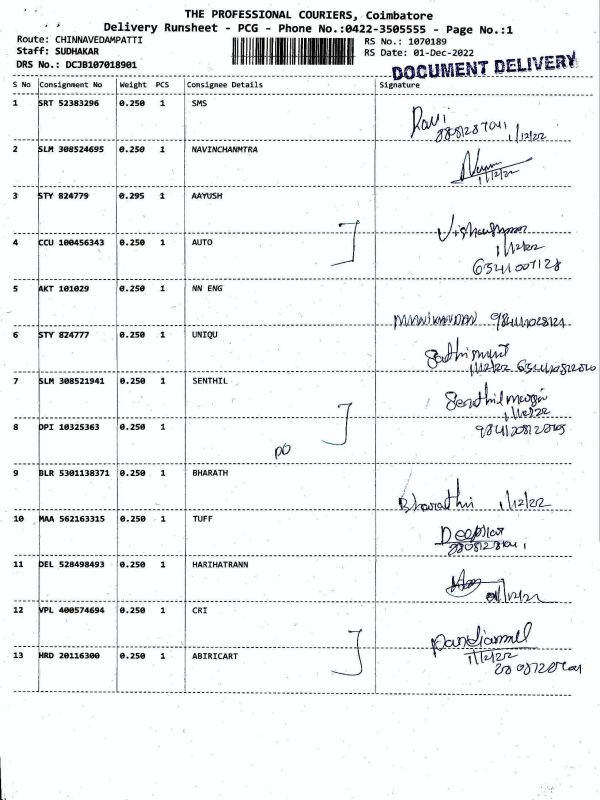 THE PROFESSIONAL COURIERS, Coimbatore
Delivery Runsheet - PCG - Phone No.:0422-3505555 - Page No.:1
Route: CHINNAVEDAMPATTI
RS No.: 1070189
Staff: SUDHAKAR
RS Date: 01-Dec-2022
DRS No.: DCJB107018901
DOCUMENT DELIVERY
S No Consignment No Weight PCS Consignee Details Signature
1 SRT 52383296 0.250 1 SMS
Ravi
1/12/22
2 SLM 308524695 0.250 1 NAVINCHANMTRA
1/12/22
3 STY 824779 0.295 1 AAYUSH
4 CCU 100456343 0.250 1 AUTO
1/12/22
6541007128
5 AKT 101029 0.250 1 NN ENG
MANIKANDAN
6 STY 824777 0.250 1 UNIQU
1/12/22
7 SLM 308521941 0.250 1 SENTHIL
1/12/22
8 DPI 10325363 0.250 1
PO
9 BLR 5301138371 0.250 1 BHARATH
Bharathi 1/12/22
10 MAA 562163315 0.250 1 TUFF
11 DEL 528498493 0.250 1 HARIHATRANN
01/12/22
12 VPL 400574694 0.250 1 CRI
13 HRD 20116300 0.250 1 ABIRICART
1/12/22